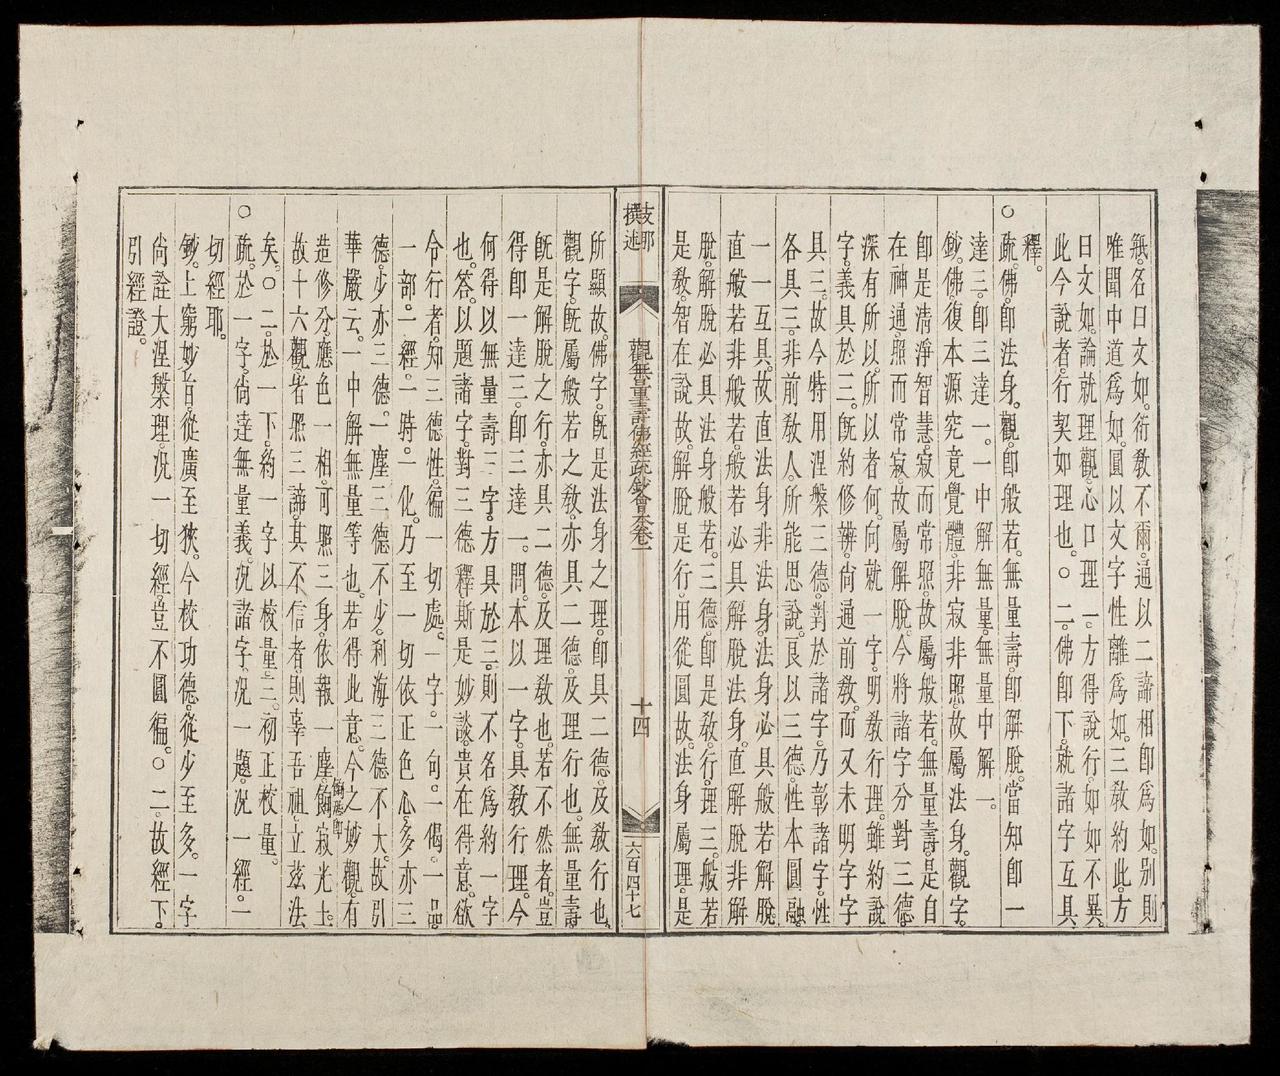 無名曰文如衍教不爾通以二諦相即爲如别則
唯聞中道爲如圓以文字性離爲如三教約此方
曰文如論就理觀心口理一方得說行如如不異
此今說者行契如理也○二佛即下就諸字互具
釋
○疏佛即法身觀即般若無量壽即解脫當知即一
達三即三達一一中解無量無量中解一
鈔佛復本源究竟覺體非寂非照故屬法身觀字
即是淸淨智慧寂而常照故屬般若無量壽是自
在神通照而常寂故屬解脫今將諸字分對三德
深有所以所以者何向就一字明教行理雖約說
字義具於三旣約修辨尚通前教而又未明字字
具三故今特用涅槃三德對於諸字乃彰諸字性
各具三非前教人所能思說良以三德性本圓融
一一互具故直法身非法身法身必具般若解脫
直般若非般若般若必具解脫法身直解脫非解
脫解脫必具法身般若三德即是教行理三般若
是教智在說故解脫是行用從圓故法身屬理是
支那撰述
觀無量壽佛經疏鈔會本卷一
十四
六百四十七
所顯故佛字旣是法身之理即具二德及教行也
觀字旣屬般若之教亦具二德及理行也無量壽
旣是解脫之行亦具二德及理教也若不然者豈
得即一達三即三達一問本以一字具教行理今
何得以無量壽三字方具於三則不名爲約一字
也答以題諸字對三德釋斯是妙談貴在得意欲
令行者知三德性徧一切處一字一句一偈一品
一部一經一時一化乃至一切依正色心多亦三
德少亦三德一塵三德不少刹海三德不大故引
華嚴云一中解無量等也若得此意今之妙觀有
造修分應色一相可照三身依報一塵銷寂光土
故十六觀皆照三諦其不信者則辜吾祖立茲法
矣○二於一下約一字以校量二初正校量
○疏於一字尚達無量義況諸字況一題況一經一
切經耶
鈔上窮妙旨從廣至狹今校功德從少至多一字
尚詮大涅槃理況一切經豈不圓徧○二故經下
引經證